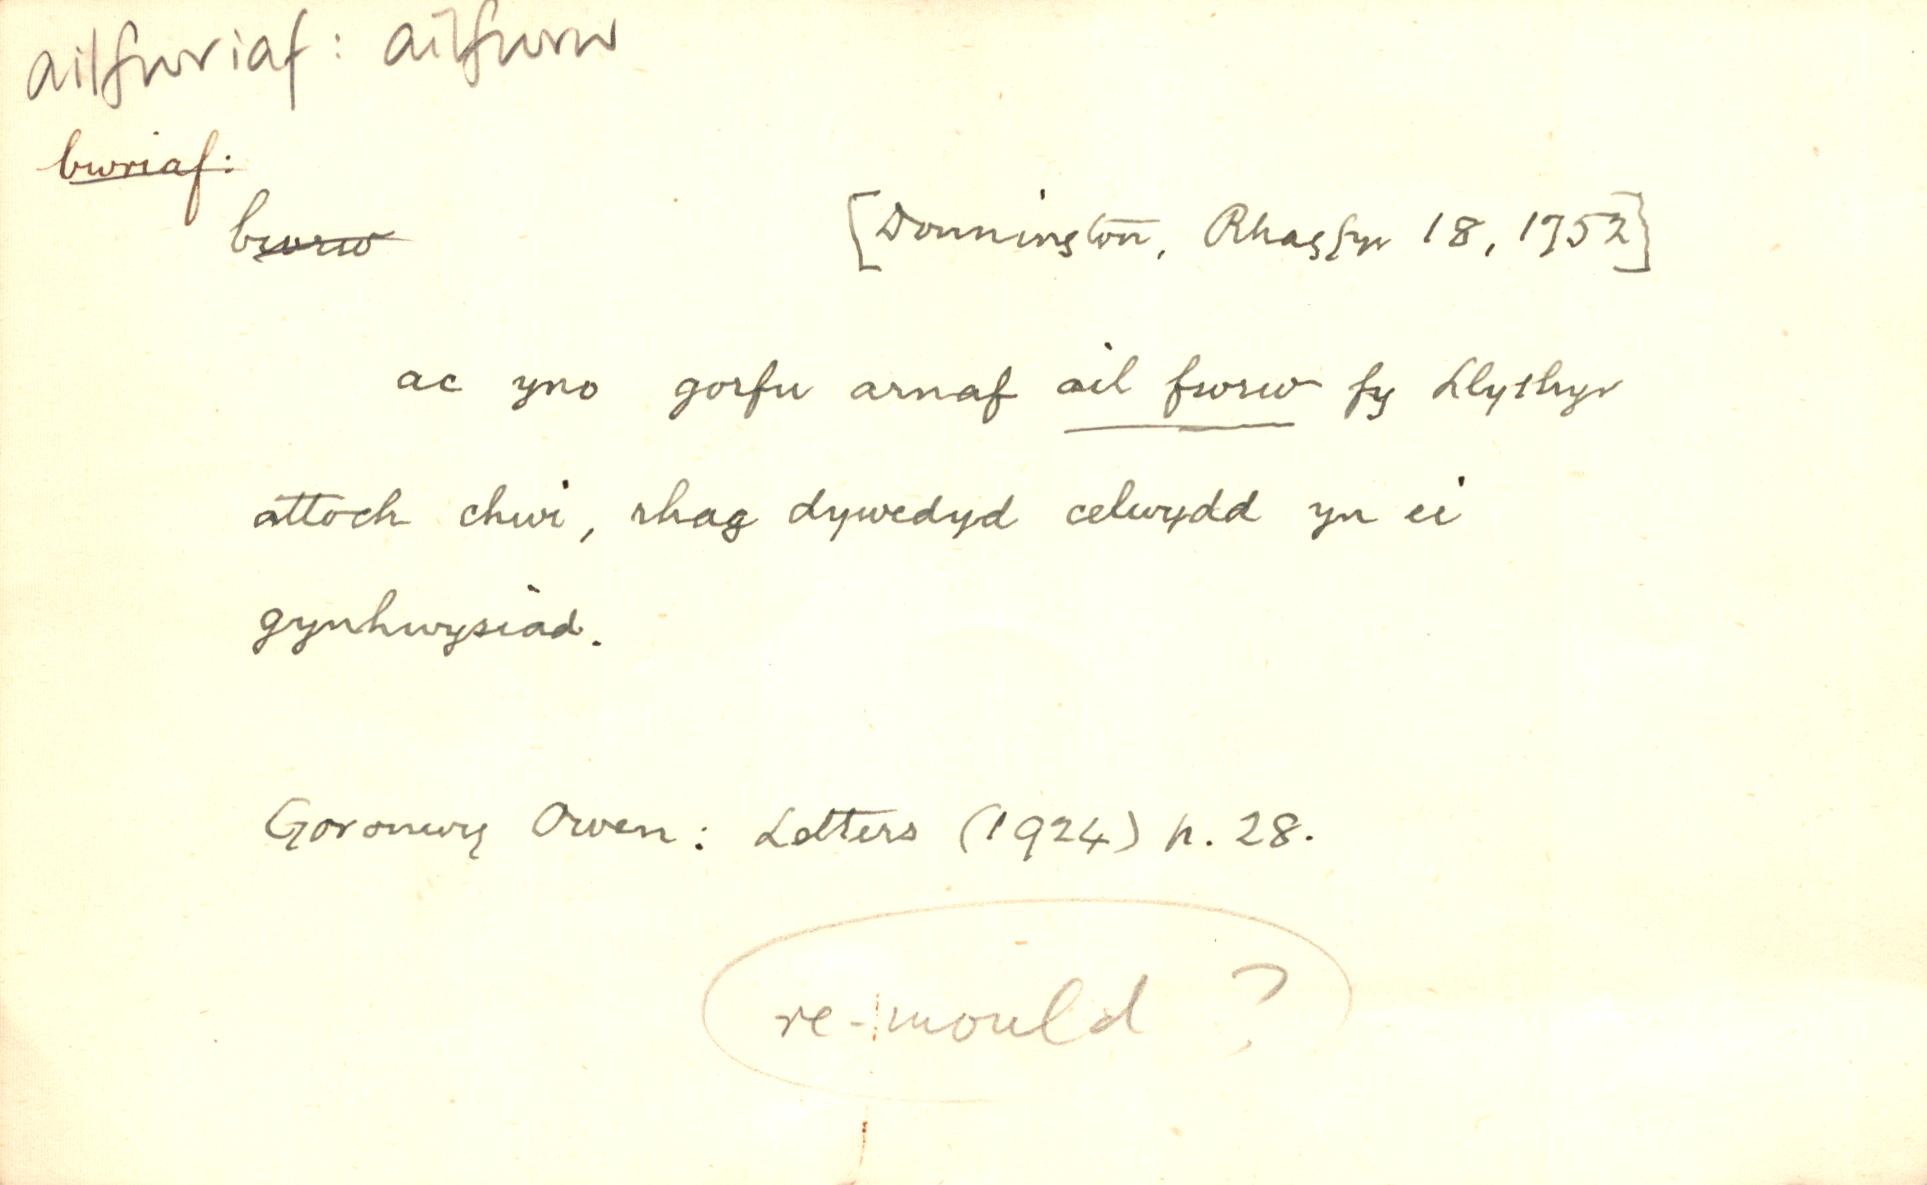 ailfwriaf: ailfwrw
bwriaf:
bwrw
[Donnington, Rhagfyr 18, 1752]
ac yno gorfu arnaf ail fwrw fy Llythyr
attoch chwi, rhag dywedyd celwydd yn ei
gynhwysiad.
Goronwy Owen: Letters (1924) p. 28.
re-mould ?